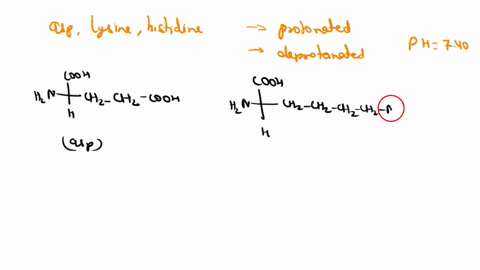 asp, lysine, histidine → protonated
→ deprotonated
PH = 7.40
COOH
H₂N CH₂-CH₂-COOH
H
(asp)
COOH
H₂N CH₂-CH₂-CH₂-CH₂-
H